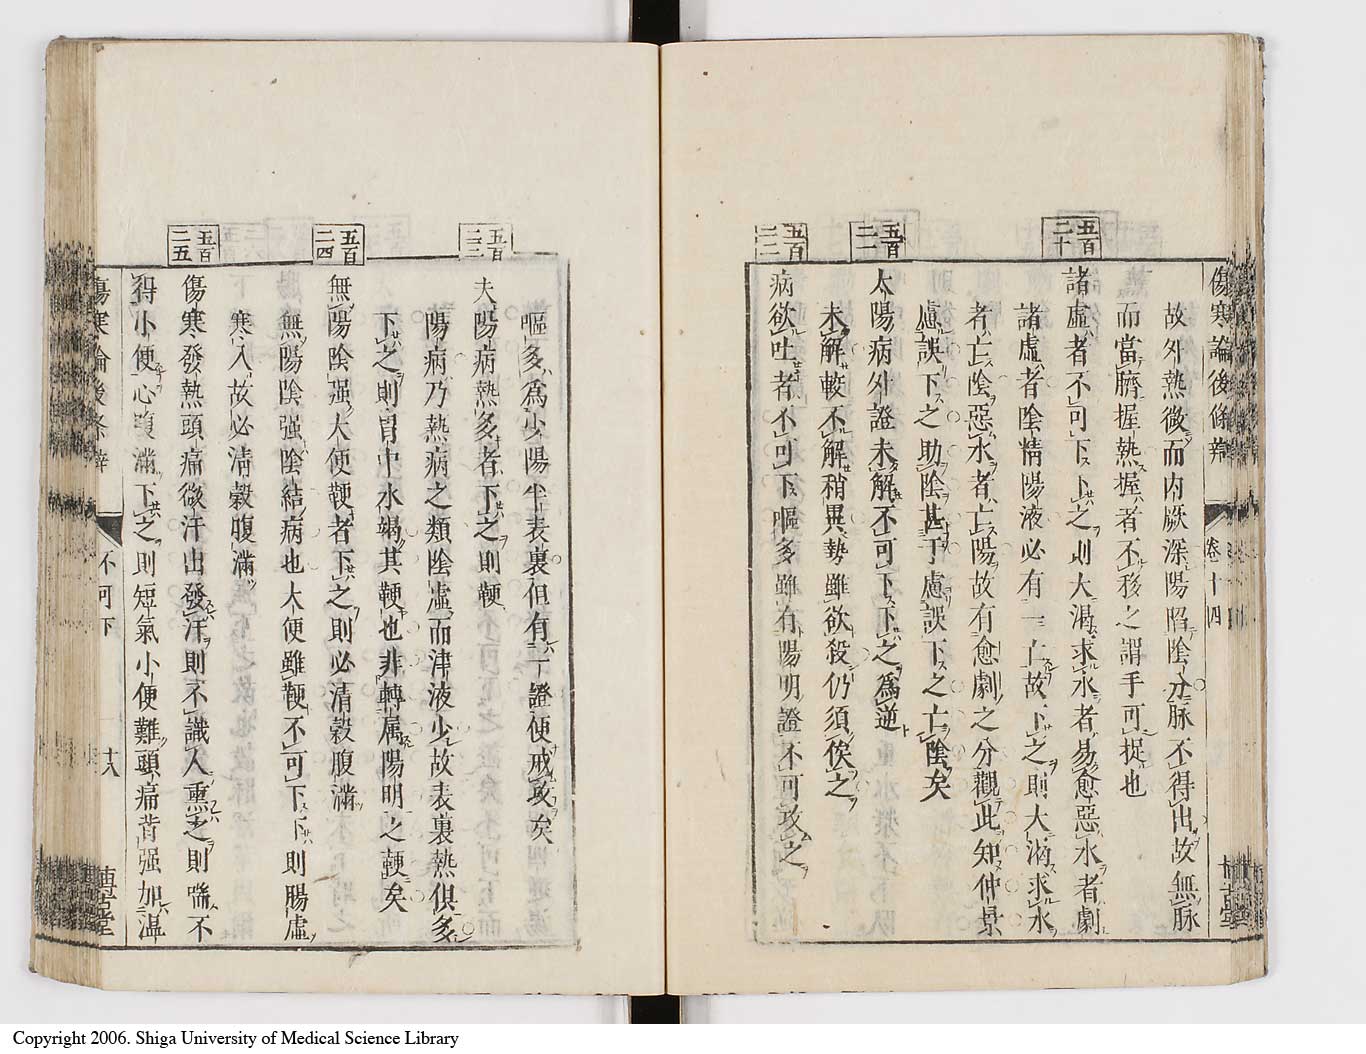 傷寒論後條辨
卷十四
故外熱微而内厥深陽陷陰分脉不得出故無脉
而當臍握熱握者不移之謂手可捉也
五百二十
諸虛者不可下下之則大渴求水者易愈惡水者劇
諸虛者陰精陽液必有一亡故下之則大渴求水
者亡陰惡水者亡陽故有愈劇之分觀此知仲景
慮誤下之助陰甚于慮誤下之亡陰矣
五百二一
太陽病外證未解不可下下之爲逆
未解較不解稍異勢雖欲殺仍須俟之
五百二二
病欲吐者不可下嘔多雖有陽明證不可攻之
嘔多爲少陽半表裏但有下證便戒攻矣
五百二三
夫陽病熱多者下之則鞕
陽病乃熱病之類陰虛而津液少故表裏熱俱多
下之則胃中水竭其鞕也非轉属陽明之鞕矣
五百二四
無陽陰强大便鞕者下之則必清穀腹滿
無陽陰强陰結病也大便雖鞕不可下下則腸虛
寒入故必清穀腹滿
五百二五
傷寒發熱頭痛微汗出發汗則不識人熏之則喘不
得小便心腹滿下之則短氣小便難頭痛背强加温
傷寒論後條辨
不可下
十八
博古堂
Copyright 2006. Shiga University of Medical Science Library